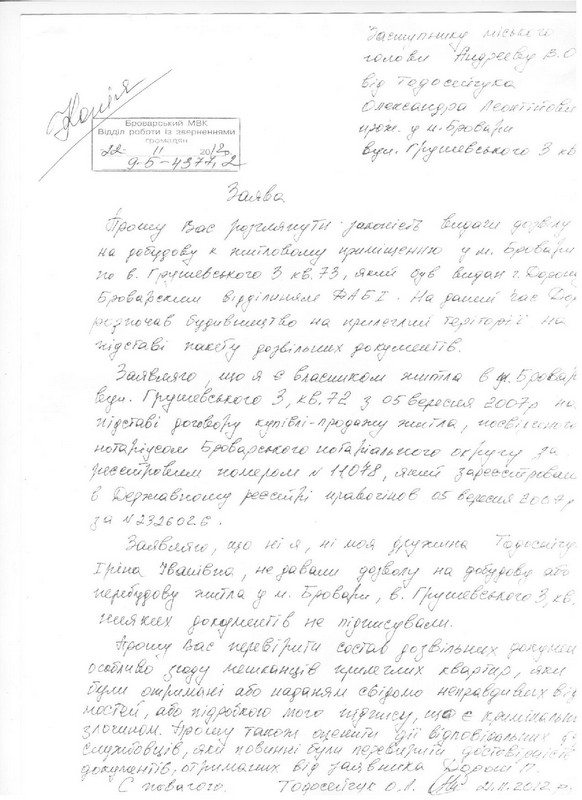 Заступнику міського
голови Андрєєву В.О
від Тодосейчука
Олександра Леонтійови
прож. у м. Бровари
вул. Грушевського 3 кв
Копія
Броварський МВК
Відділ роботи із зверненнями
громадян
22 11 2012
9-Б-4377,2
Заява
Прошу Вас розглянути законність видачи дозволу
на добудову к житловому приміщенню у м. Бровари
по в. Грушевського 3 кв. 73, який був видан г. Дорош
Броварским відділиням ДАБІ. На даний час Дор
розпочав будивництво на прилеглий теріторії на
підставі пакету дозвільних документів.
Заявляю, що я є власником житла в м. Бровар
вул. Грушевського 3, кв. 72 з 05 вересня 2007р на
підставі договору купівлі-продажу житла, посвідч
нотаріусом Броварського нотаріального округу за
реєстровим номером N 11078, який зареєстрован
в Державному реєстрі правочінов 05 вересня 2007р
за N 2326026.
Заявляю, що ні я, ні моя дружина Тодосейчу
Ірина Іванівна, не давали дозволу на добудову або
перебудову житла у м. Бровари, в. Грушевського 3, кв.
ніяких документів не підписували.
Прошу Вас перевірити состав дозвільних докумен
особливо згоду мешканців прилеглих квартир, яки
були отримані або наданям свідомо неправдивих від
ностей, або підробкою мого підпису, що є кримінальн
злочином. Прошу також оценити дії відповігальних
службовців, яки повинні були перевирити достовірність
документів, отриманих від заявника Дорош
С повагою. Тодосейчук О.Л. 21.11.2012 р.